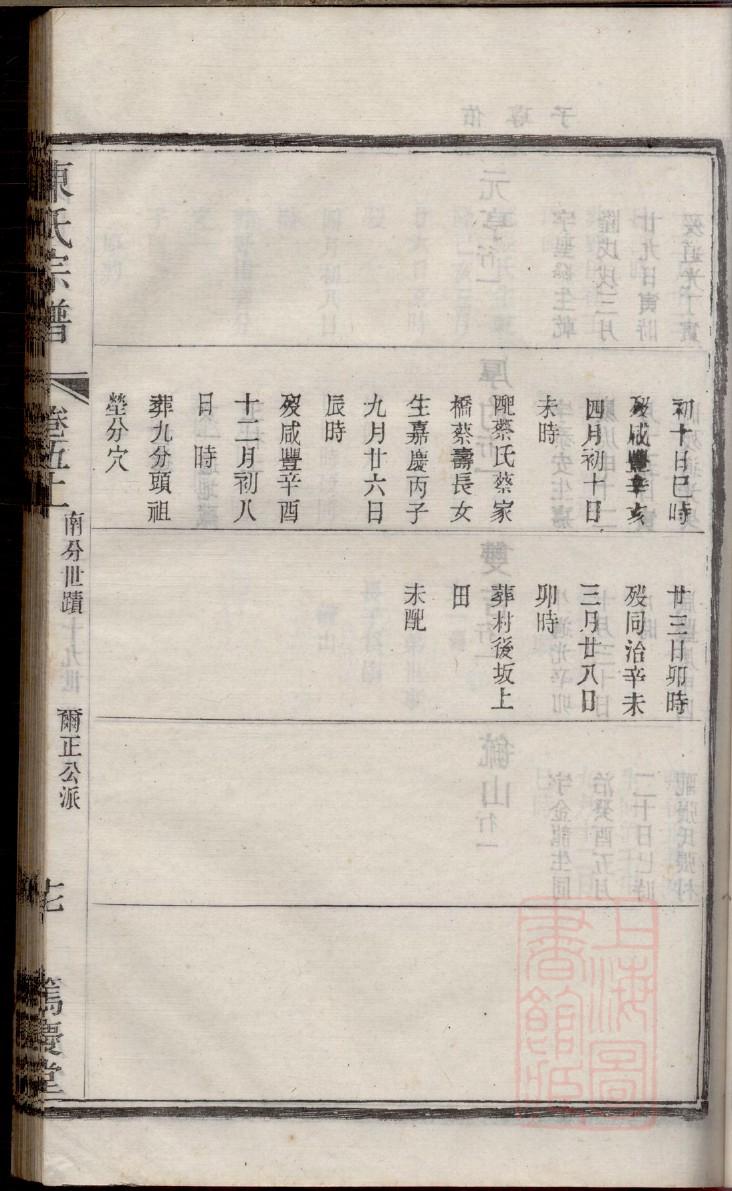 初十日巳時
歿咸豐辛亥
四月初十日
未時
配蔡氏蔡家
橋蔡壽長女
生嘉慶丙子
九月廿六日
辰時
歿咸豐辛酉
十二月初八
日　時
葬九分頭祖
塋分穴
廿三日卯時
歿同治辛未
三月廿八日
卯時
葬村後坂上
田
未配
陳氏宗譜
卷五十
南分世蹟十九世
爾正公派
篤慶堂
上海圖書館藏